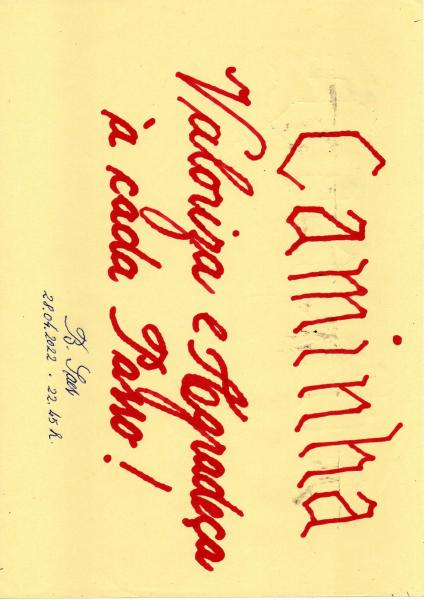 Caminha
Valoriza e Agradeça
à cada Passo!
28.04.2022 · 22.45 h.